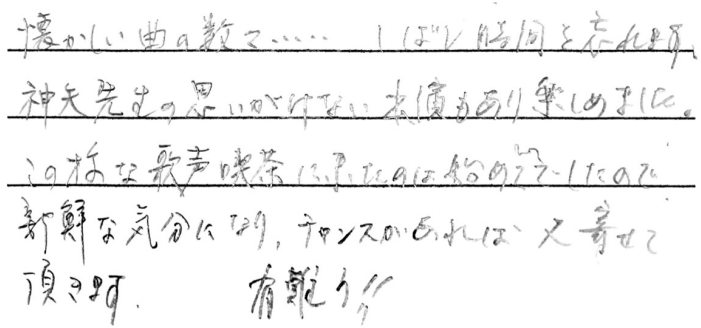 懐かしい曲の数々…… しばし時間を忘れます、
神矢先生の思いがけない出演もあり楽しめました。
この様な歌声喫茶に来たのは始めてでしたので
新鮮な気分になり、チャンスがあれば又寄せて
頂きます。 有難う!!